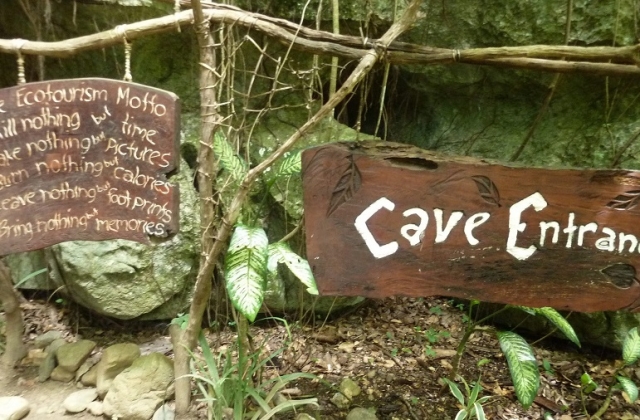 e Ecotourism Motto
ill nothing but time
ake nothing but pictures
urn nothing but calories
Leave nothing but foot prints
Bring nothing but memories.
Cave Entran